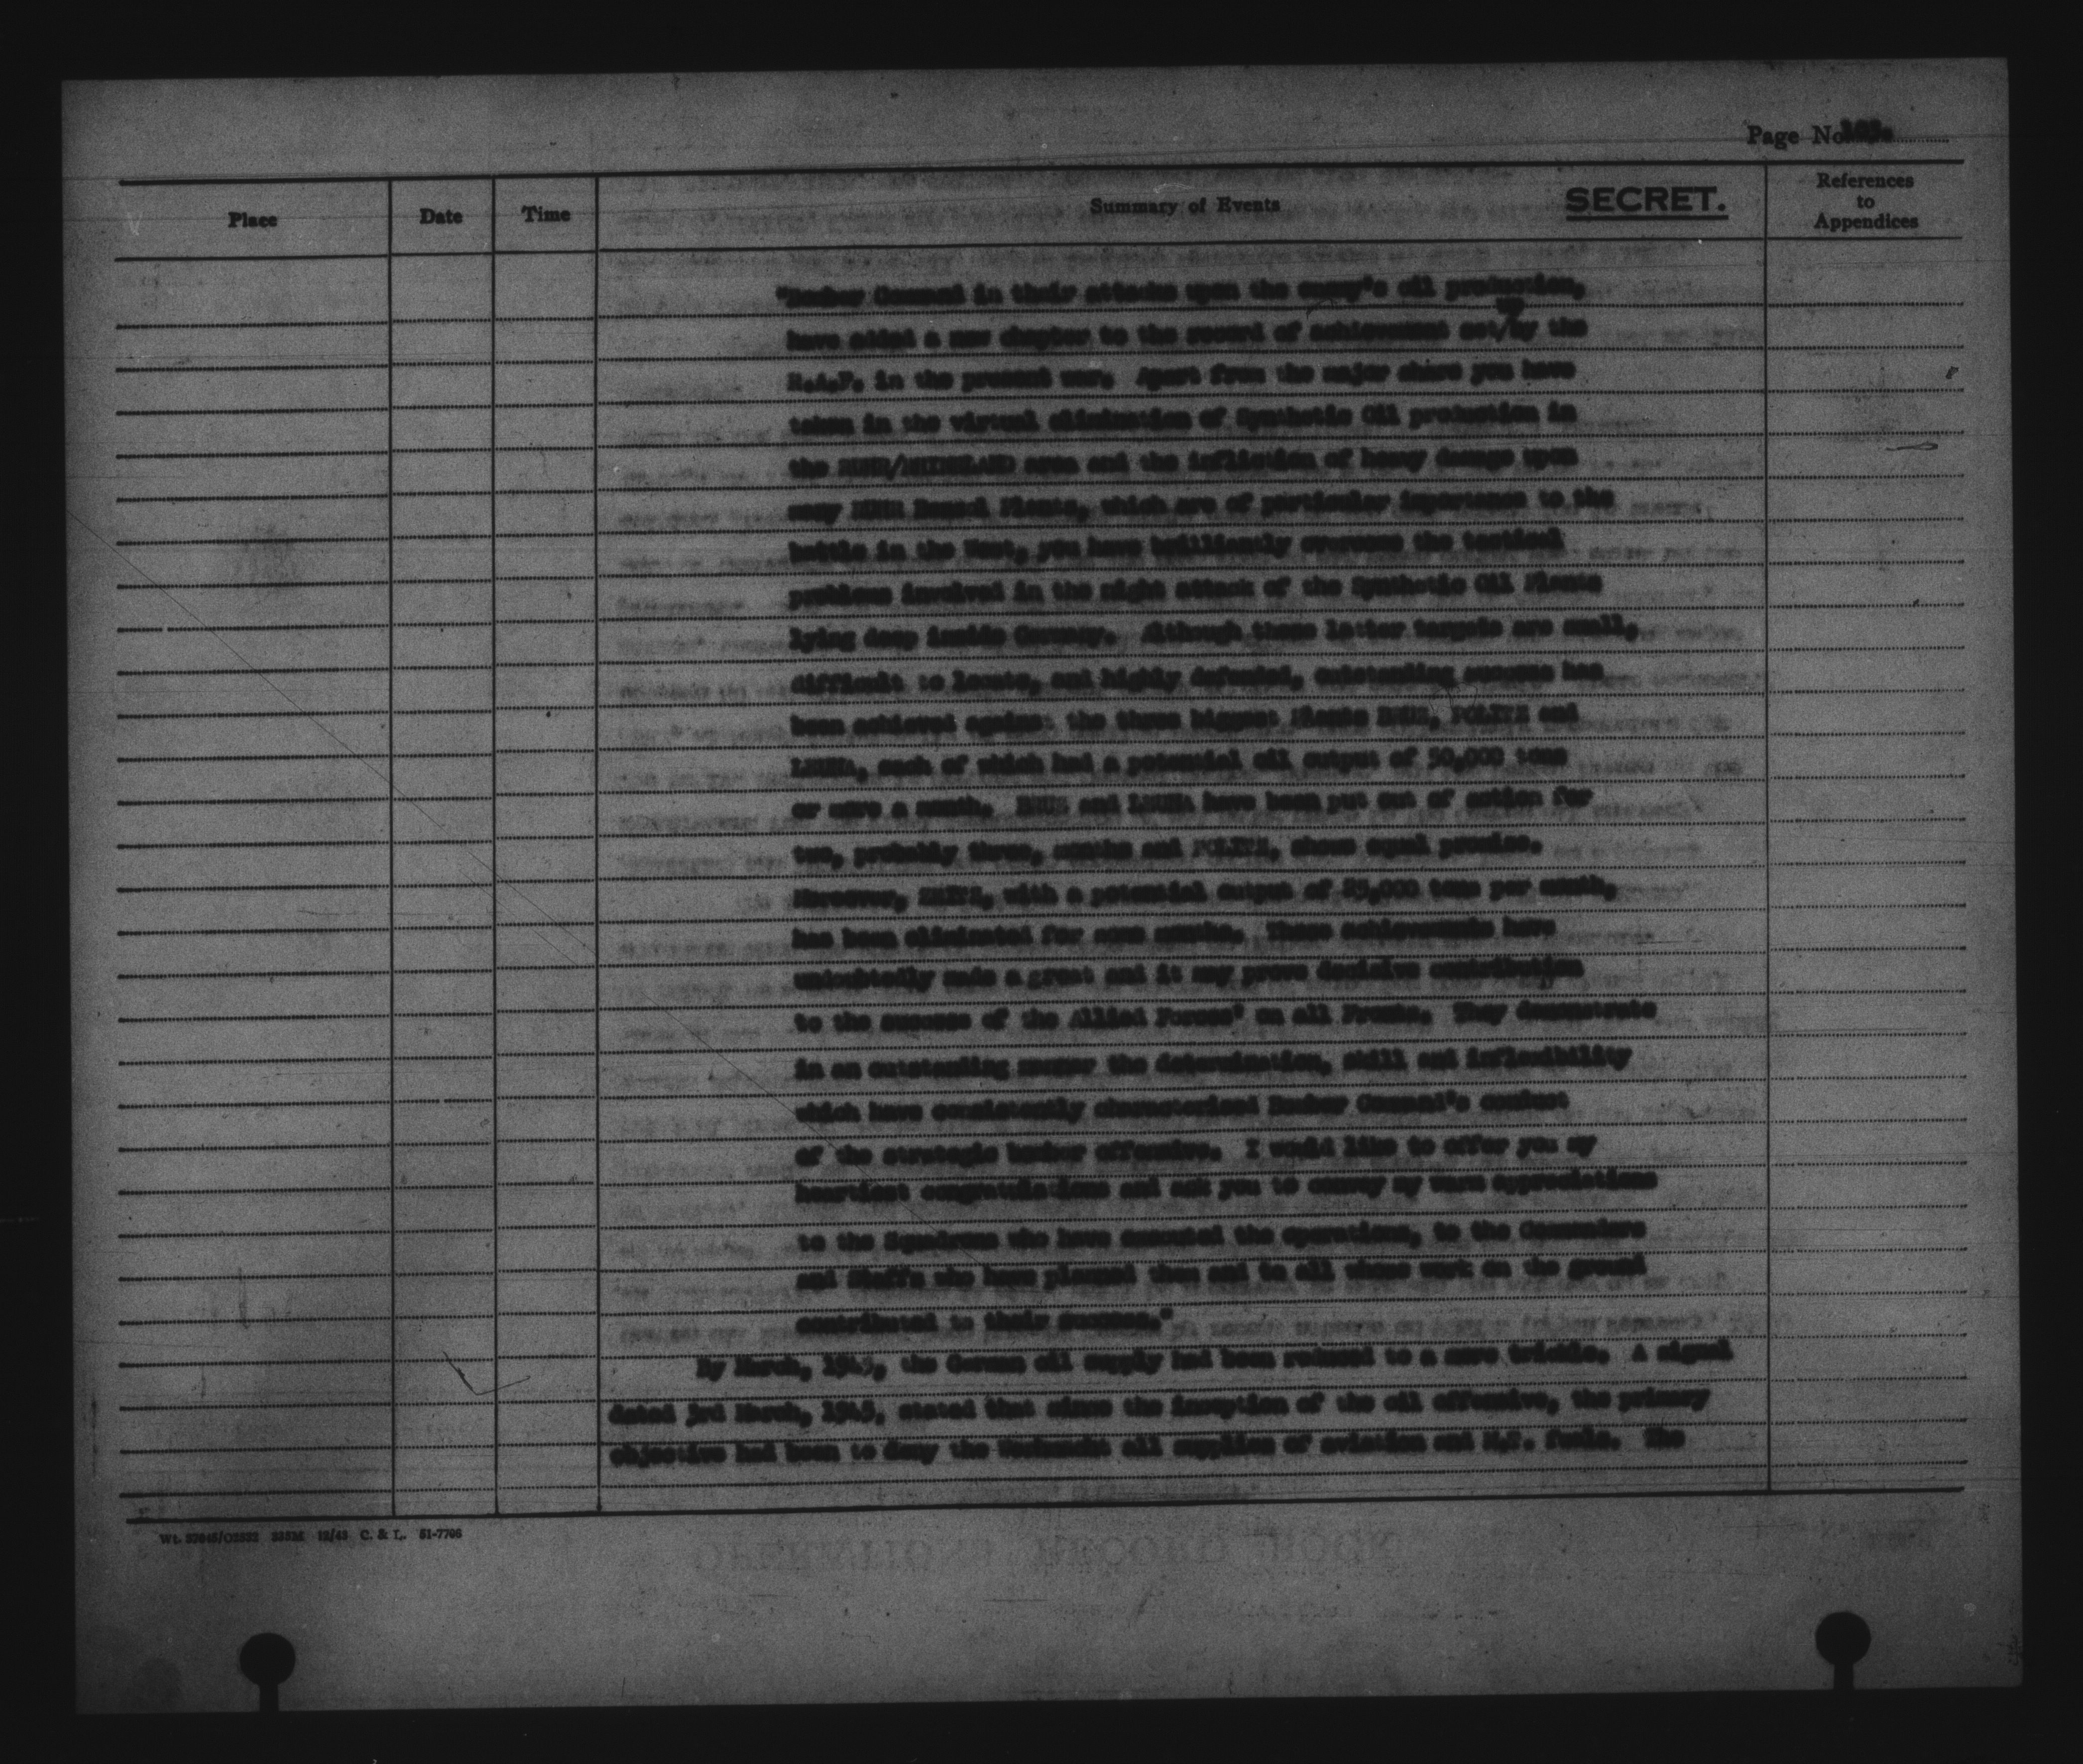 Page No.
Place Date Time Summary of Events SECRET. References to Appendices
"Bomber Command in their attacks upon the enemy's oil production,
up
have added a new chapter to the record of achievement set/by the
R.A.F. in the present war. Apart from the major share you have
taken in the virtual elimination of Synthetic Oil production in
the RUHR/RHINELAND area and the infliction of heavy damage upon
many RUHR Benzol Plants, which are of particular importance to the
battle in the West, you have brilliantly overcome the tactical
problems involved in the night attack of the Synthetic Oil Plants
lying deep inside Germany. Although these latter targets are small,
difficult to locate, and highly defended, outstanding success has
been achieved against the three biggest Plants BRUX, POLITZ and
LEUNA, each of which had a potential oil output of 50,000 tons
or more a month. BRUX and LEUNA have been put out of action for
two, probably three, months and POLITZ, shows equal promise.
Moreover, ZEITZ, with a potential output of 25,000 tons per month,
has been eliminated for some months. These achievements have
undoubtedly made a great and it may prove decisive contribution
to the success of the Allied Forces' on all Fronts. They demonstrate
in an outstanding manner the determination, skill and inflexibility
which have consistently characterised Bomber Command's conduct
of the strategic bomber offensive. I would like to offer you my
heartiest congratulations and ask you to convey my warm appreciations
to the Squadrons who have executed the operations, to the Commanders
and Staffs who have planned them and to all whose work on the ground
contributed to their success."
By March, 1945, the German oil supply had been reduced to a mere trickle. A signal
dated 3rd March, 1945, stated that since the inception of the oil offensive, the primary
objective had been to deny the Wehrmacht all supplies of aviation and M.T. fuels. The
Wt. 37945/O2532 335M 12/43 C. & L. 51-7706